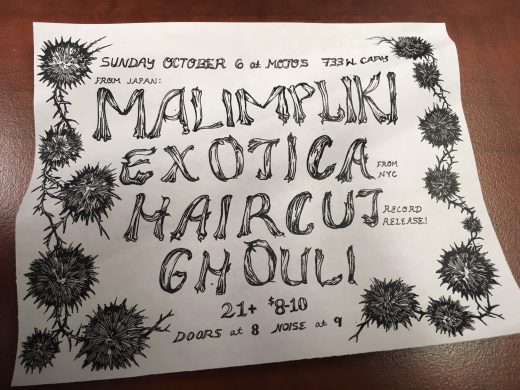 SUNDAY OCTOBER 6 at MOJOS 733 W. CARY
FROM JAPAN:
MALIMPLIKI
EXOTICA
FROM
NYC
HAIRCUT
RECORD
RELEASE!
GHOULI
21+ $8-10
DOORS at 8 NOISE at 9